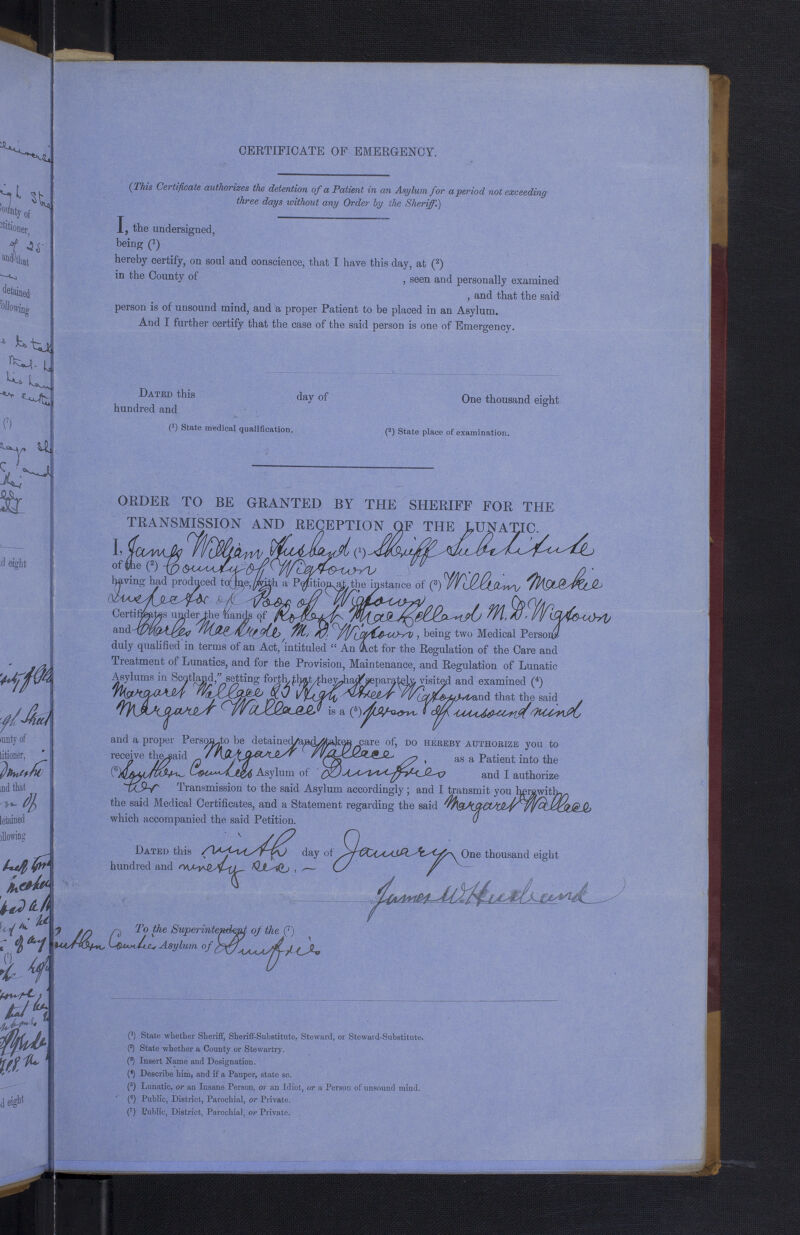 CERTIFICATE OF EMERGENCY.
(This Certificate authorizes the detention of a Patient in an Asylum for a period not exceeding
three days without any Order by the Sheriff.)
I, the undersigned,
being (1)
hereby certify, on soul and conscience, that I have this day, at (2)
in the County of , seen and personally examined
, and that the said
person is of unsound mind, and a proper Patient to be placed in an Asylum.
And I further certify that the case of the said person is one of Emergency.
DATED this day of One thousand eight
hundred and
(1) State medical qualification. (2) State place of examination.
ORDER TO BE GRANTED BY THE SHERIFF FOR THE
TRANSMISSION AND RECEPTION OF THE LUNATIC.
I, James William Husband (1) Sheriff Substitute
of the (2) County of Wigtown
having had produced to me, with a Petition at the instance of (3) William Mackie
Inspector of Poor of Wigtown
Certificates under the hands of Robert MacKelland M.D. Wigtown
and Charles Mac M.D. Wigtown, being two Medical Persons
duly qualified in terms of an Act, intituled " An Act for the Regulation of the Care and
Treatment of Lunatics, and for the Provision, Maintenance, and Regulation of Lunatic
Asylums in Scotland," setting forth that they had separately visited and examined (4)
Margaret Wallace 23 High Street Wigtown and that the said
Margaret Wallace is a (5) person of unsound mind
and a proper Person to be detained and taken care of, DO HEREBY AUTHORIZE you to
receive the said Margaret Wallace as a Patient into the
(6) Southern Counties Asylum of Dumfries and I authorize
her Transmission to the said Asylum accordingly ; and I transmit you herewith
the said Medical Certificates, and a Statement regarding the said Margaret Wallace
which accompanied the said Petition.
DATED this ninth day of January One thousand eight
hundred and ninety six. —
James W. Husband
To the Superintendent of the (7)
Southern Counties Asylum of Dumfries
(1) State whether Sheriff, Sheriff-Substitute, Steward, or Steward-Substitute.
(2) State whether a County or Stewartry.
(3) Insert Name and Designation.
(4) Describe him, and if a Pauper, state so.
(5) Lunatic, or an Insane Person, or an Idiot, or a Person of unsound mind.
(6) Public, District, Parochial, or Private.
(7) Public, District, Parochial, or Private.